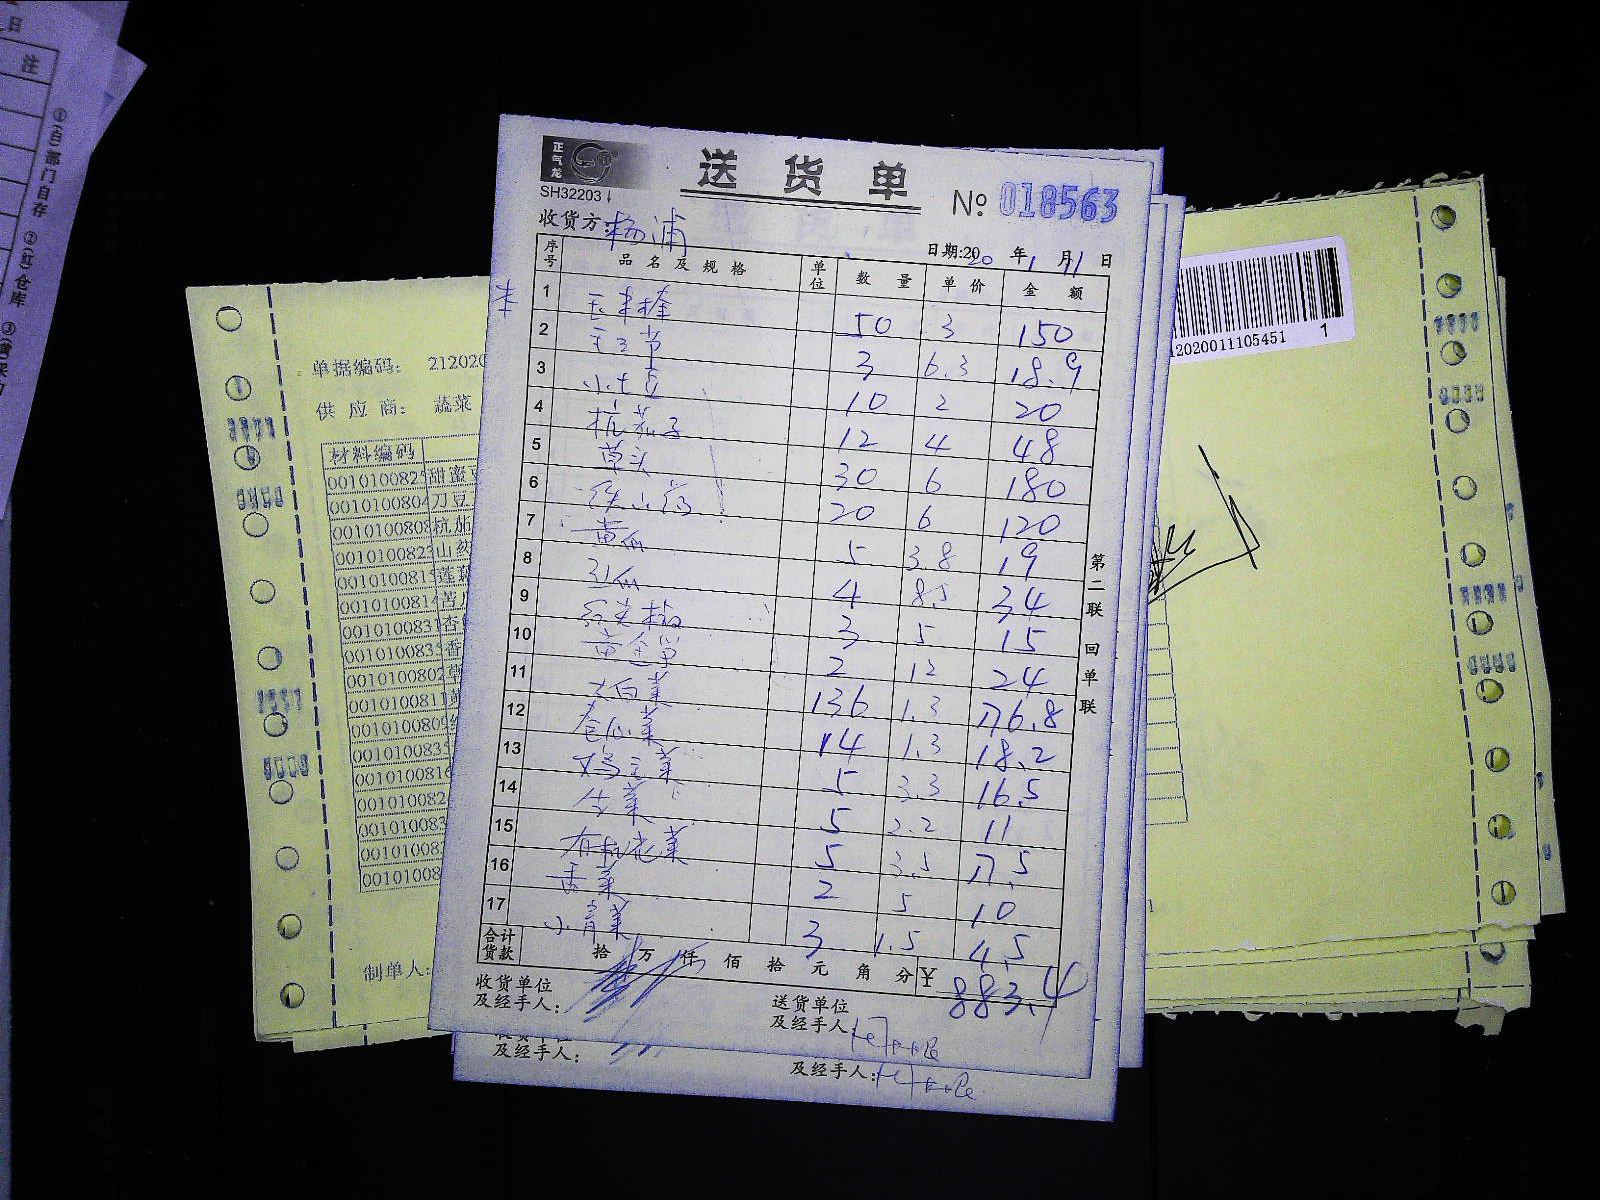 日
注
①(白)部门自存 ②(红)仓库 ③(黄)采购
正气龙
SH32203
送货单
№ 018563
收货方: 杨浦
日期:2020 年 1 月 11 日
序号 品名及规格 单位 数量 单价 金额
1 玉米棒 50 3 150
2 3 6.3 18.9
3 小土豆 10 2 20
4 杭茄子 12 4 48
5 草头 30 6 180
6 铁山药 20 6 120
7 黄瓜 5 3.8 19
8 4 8.5 34
9 红尖椒 3 5 15
10 2 12 24
11 大白菜 136 1.3 176.8
12 卷心菜 14 1.3 18.2
13 5 3.3 16.5
14 生菜 5 2.2 11
15 有机花菜 5 3.5 17.5
16 香菜 2 5 10
17 小青菜 3 1.5 4.5
合计货款 拾 万 仟 佰 拾 元 角 分 ¥ 883.4
收货单位及经手人:
送货单位及经手人:
第二联 回单联
及经手人:
及经手人:
单据编码: 212020
供应商: 蔬菜
材料编码
001010082 甜蜜豆
001010080 刀豆
001010080 杭茄
001010082 山药
001010081 莲藕
001010081
001010083 杏
001010083 香
001010080 草
001010081
001010080
001010083
001010081
00101008
00101008
00101008
00101008
制单人:
12020011105451 1